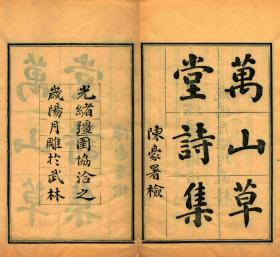 萬山草
堂詩集
陳豪署檢
光緒彊圉協洽之
歲陽月雕於武林